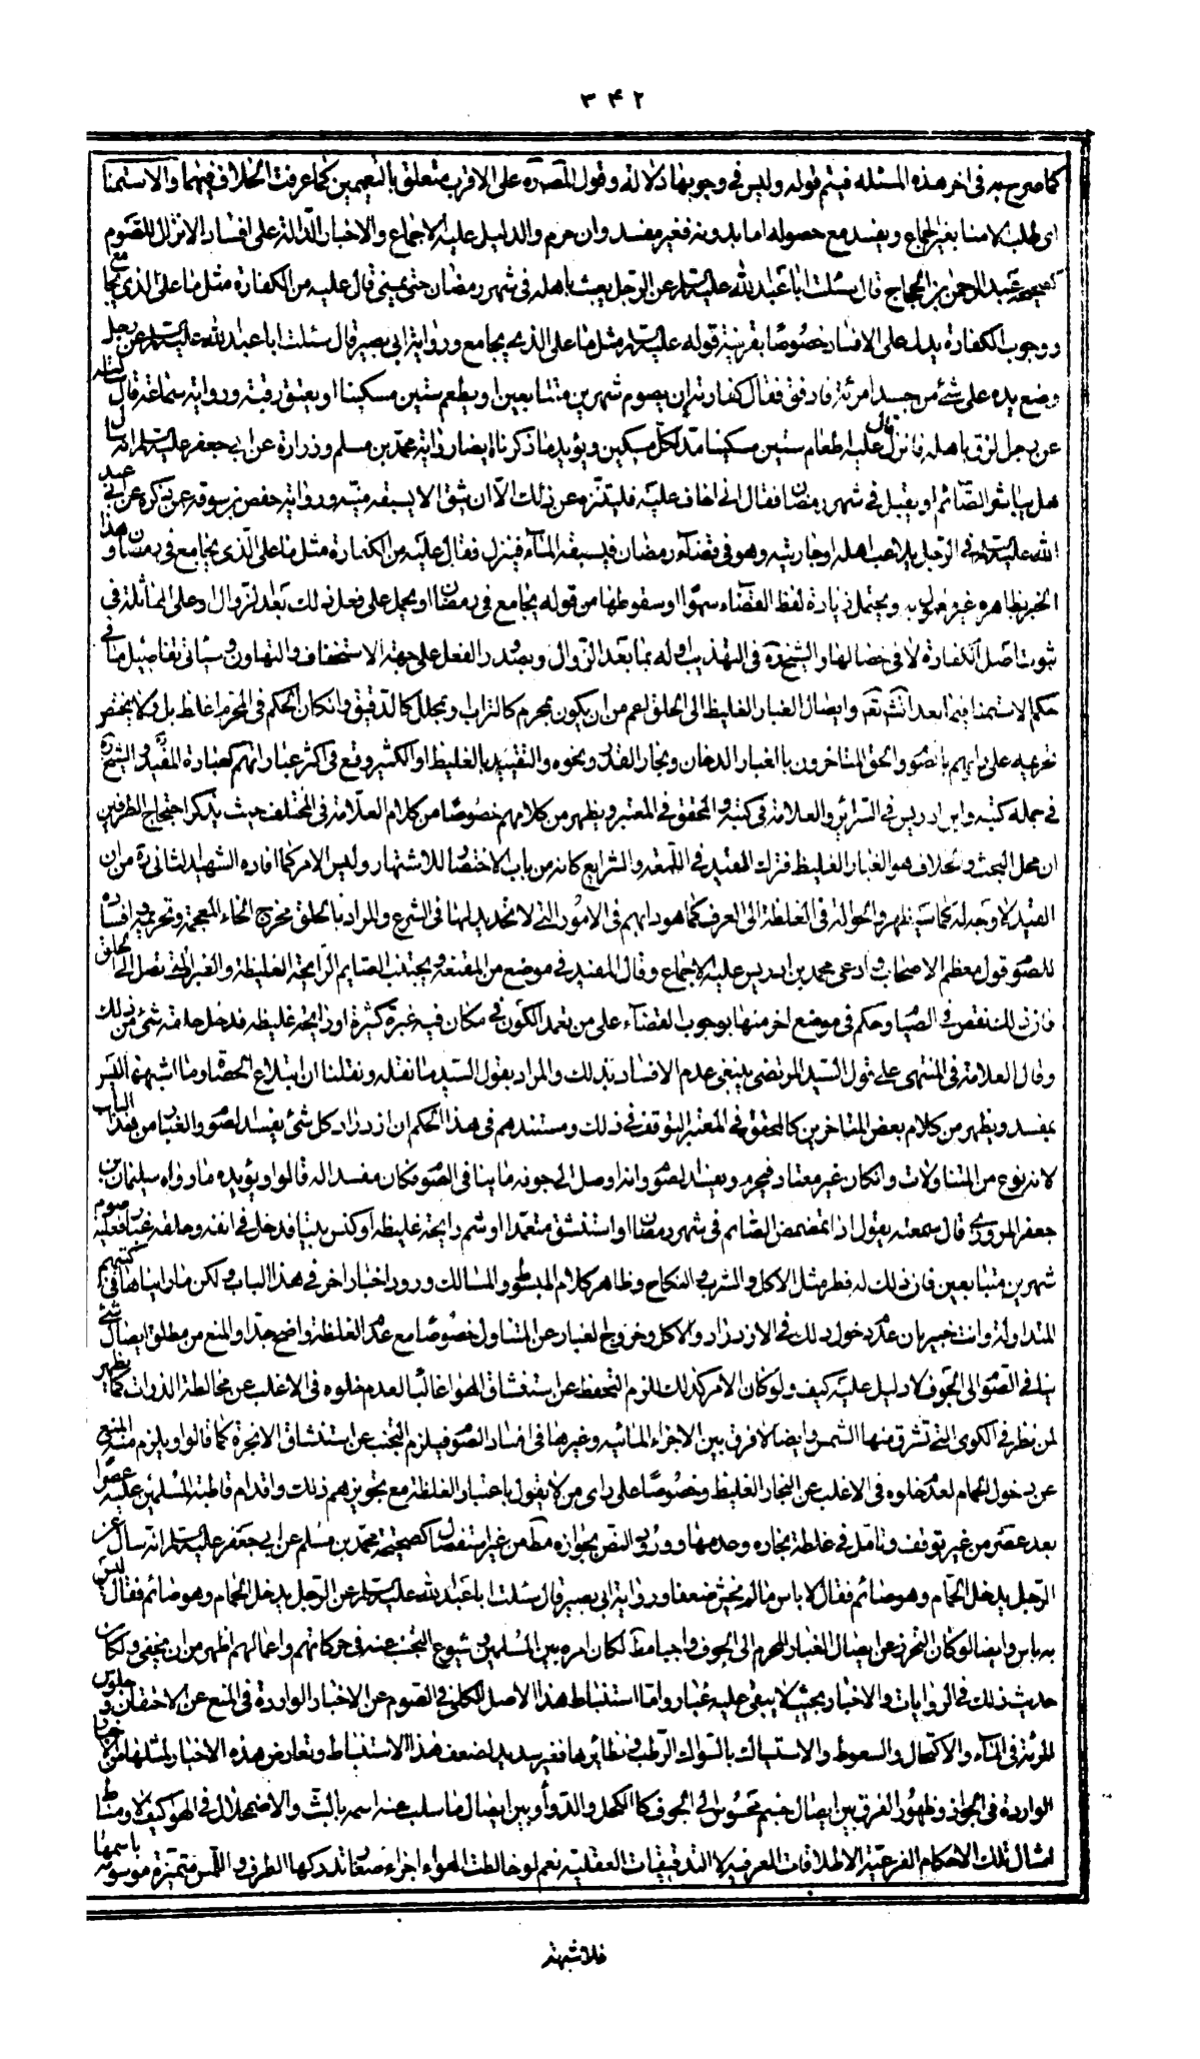 ۳۴۲
كما صرح به فى اخر هذه المسئله فيتم قوله وليس فى وجوبها دلالة وقول المصره على الاقرب متعلق بالتعميمين كما عرفت الخلاف فيهما والاستمنا
اى طلب الامنا بغير الجماع ويفسد مع حصوله اما بدونه فغير مفسد وان حرم والدليل عليه الاجماع والاخبار الدالة على افساد الانزال للصوم
كصحيحة عبد الرحمن بن الحجاج قال سئلت ابا عبد الله عليه السلام عن الرجل يعبث باهله فى شهر رمضان حتى يمنى قال عليه من الكفارة مثل ما على الذى يجامع
ووجوب الكفارة يدل على الافساد خصوصا بقرينة قوله عليه السلام مثل ما على الذى يجامع ورواية ابى بصير قال سئلت ابا عبد الله عليه السلام عن رجل
وضع يده على شئ من جسد امرئة فادفق فقال كفارته ان يصوم شهرين متتابعين او يطعم ستين مسكينا او يعتق رقبة ورواية سماعة قال سئلته
عن رجل لزق باهله فانزل قال عليه اطعام ستين مسكينا مد لكل مسكين ويؤيد ما ذكرناه ايضا رواية محمد بن مسلم وزرارة عن ابى جعفر عليه السلام انه سئل
هل يباشر الصائم او يقبل فى شهر رمضان فقال انى اخاف عليه فليتنزه عن ذلك الا ان يثق الا يسبقه منيه ورواية حفص بن سوقة عمن ذكره عن ابى عبد
الله عليه السلام فى الرجل يلاعب اهله او جاريته وهو فى قضاء رمضان فيسبقه الماء فينزل فقال عليه من الكفارة مثل ما على الذى يجامع فى رمضان وهذا
الخبر بظاهره غير معمول به ويحتمل زيادة لفظ القضاء سهوا او سقوطها من قوله يجامع فى رمضان او يحمل على فعل ذلك بعد الزوال او على المماثلة فى
ثبوت اصل الكفارة لا فى خصالها والشيخ ره فى التهذيب اوله بما بعد الزوال وبصدر الفعل على جهة الاستخفاف والتهاون وسياتى تفاصيل ما فى
حكم الاستمنا فيما بعد انشاء الله تعالى وايصال الغبار الغليظ الى الحلق اعم من ان يكون بمحرم كالتراب او محلل كالدقيق وان كان الحكم فى المحرم اغلظ بل ولا يختص
تحريمه على رايهم بالصوم والحق المتاخرون بالغبار الدخان وبخار القدر ونحوه والتقييد بالغليظ او الكثير وقع فى اكثر عباراتهم كعبارة المفيد والشيخ ره
فى جملة كتبه وابن ادريس فى السرائر والعلامة فى كتبه والمحقق فى المعتبر ويظهر من كلامهم خصوصا من كلام العلامة فى المختلف حيث يذكر احتجاج الطرفين
ان محل البحث والخلاف هو الغبار الغليظ فترك التقييد فى اللمعة والشرايع كانه من باب الاختصار للاشتهار وليس الامر كما افاده الشهيد الثانى ره من ان
القيد لا وجه له كما سيظهر والحوالة فى الغلظة الى العرف كما هو دابهم فى الامور التى لا تحديد لها فى الشرع والمراد بالحلق مخرج الخاء المعجمة وتحريمه وافساده
للصوم قول معظم الاصحاب وادعى محمد بن ادريس عليه الاجماع وقال المفيد فى موضع من المقنعة ويجتنب الصايم الرايحة الغليظة والغبرة التى تصل الى الحلق
فان ذلك نقص فى الصيام وحكم فى موضع اخر منها بوجوب القضاء على من تعمد الكون فى مكان فيه غبرة كثيرة او رايحة غليظة فدخل حلقه شئ من ذلك
وقال العلامة فى المنتهى على قول السيد المرتضى ينبغى عدم الافساد بذلك والمراد بقول السيد ما نقله ونقلنا ان ابتلاع الحصا وما اشبهه ليس
بمفسد ويظهر من كلام بعض المتاخرين كالمحقق فى المعتبر التوقف فى ذلك ومستندهم فى هذا الحكم ان ازدراد كل شئ يفسد الصوم والغبار من هذا الباب
لانه نوع من المتناولات وان كان غير معتاد فيحرم ويفسد الصوم وانه اوصل الى جوفه ما ينافى الصوم فكان مفسدا له قالوا ويؤيده ما رواه سليمان بن
جعفر المروزى قال سمعته يقول اذا تمضمض الصائم فى شهر رمضان او استنشق متعمدا او شم رايحة غليظة او كنس بيتا فدخل فى انفه وحلقه غبار فعليه صوم
شهرين متتابعين فان ذلك له فطر مثل الاكل والشرب والنكاح وظاهر كلام المبسوط والمسالك ورود اخبار اخر فى هذا الباب ولكن ما رايناها فى كتبهم
المتداولة وانت خبير بان عدم دخول ذلك فى الازدراد والاكل وخروج الغبار عن المتناول خصوصا مع عدم الغلظة واضح جدا والمنع من مطلق ايصال شئ
ينافى الصوم الى الجوف لا دليل عليه كيف ولو كان الامر كذلك للزم التحفظ عن استنشاق الهوا غالبا لعدم خلوه فى الاغلب عن مخالطة الذرات كما يظهر
لمن نظر فى الكوى التى تشرق منها الشمس وايضا لا فرق بين الاجزاء المائيه وغيرها فى افساد الصوم فيلزم التجنب عن استنشاق الابخرة كما قالوا ويلزم منه المنع
عن دخول الحمام لعدم خلوه فى الاغلب عن البخار الغليظ وخصوصا على راى من لا يقول باعتبار الغلظة مع تجويزهم ذلك واقدام قاطبة المسلمين عليه عصرا
بعد عصر من غير توقف وتامل فى غلظة بخاره وعدمها وورود النص بجوازه مطلقا من غير استفصال كصحيحة محمد بن مسلم عن ابى جعفر عليه السلام انه سال عن
الرجل يدخل الحمام وهو صائم فقال لا باس ما لم يخش ضعفا ورواية ابى بصير قال سئلت ابا عبد الله عليه السلام عن الرجل يدخل الحمام وهو صائم فقال ليس
به باس وايضا لو كان التحرز عن ايصال الغبار المحرم الى الجوف واجبا مطلقا لكان امره بين المسلمين وشيوع التجنب عنه فى حركاتهم واعمالهم اظهر من ان يخفى ولكان
حديث ذلك فى الروايات والاخبار بحيث لا يبقى عليه غبار واما استنباط هذا الاصل الكلى فى الصوم عن الاخبار الواردة فى المنع عن الاحتقان وجلوس
المرئة فى الماء والاكتحال والسعوط والاستياك بالسواك الرطب ونظائرها فغير سديد لضعف هذا الاستنباط وتعارض هذه الاخبار لمثلها من الاخبار
الواردة فى الجواز وظهور الفرق بين ايصال جسم محسوس الى الجوف كالكحل والدواء وبين ايصال ما سلب عنه اسمه بالبث والاضمحلال فى الهوا كيف لا ومناط
امثال تلك الاحكام الفرعية الاطلاقات العرفية لا التدقيقات العقلية نعم لو خالطت الهواء اجزاء صغار تدركها الطرف واللمس متميزة موسومة باسمها
فلا شبهة